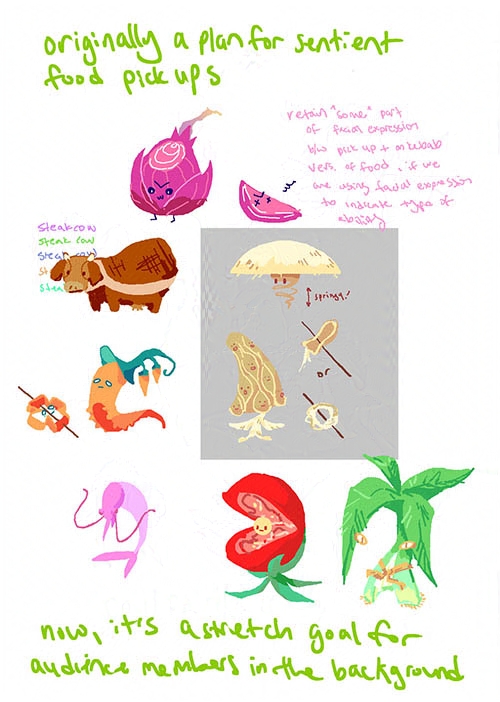 originally a plan for sentient
food pick ups
retain "some" part
of facial expression
b/w pick up + on kebab
vers. of food, if we
are using facial expression
to indicate type of
ability
steak cow
steak cow
steak cow
st
stea
springy!
or
now, it's a stretch goal for
audience members in the background